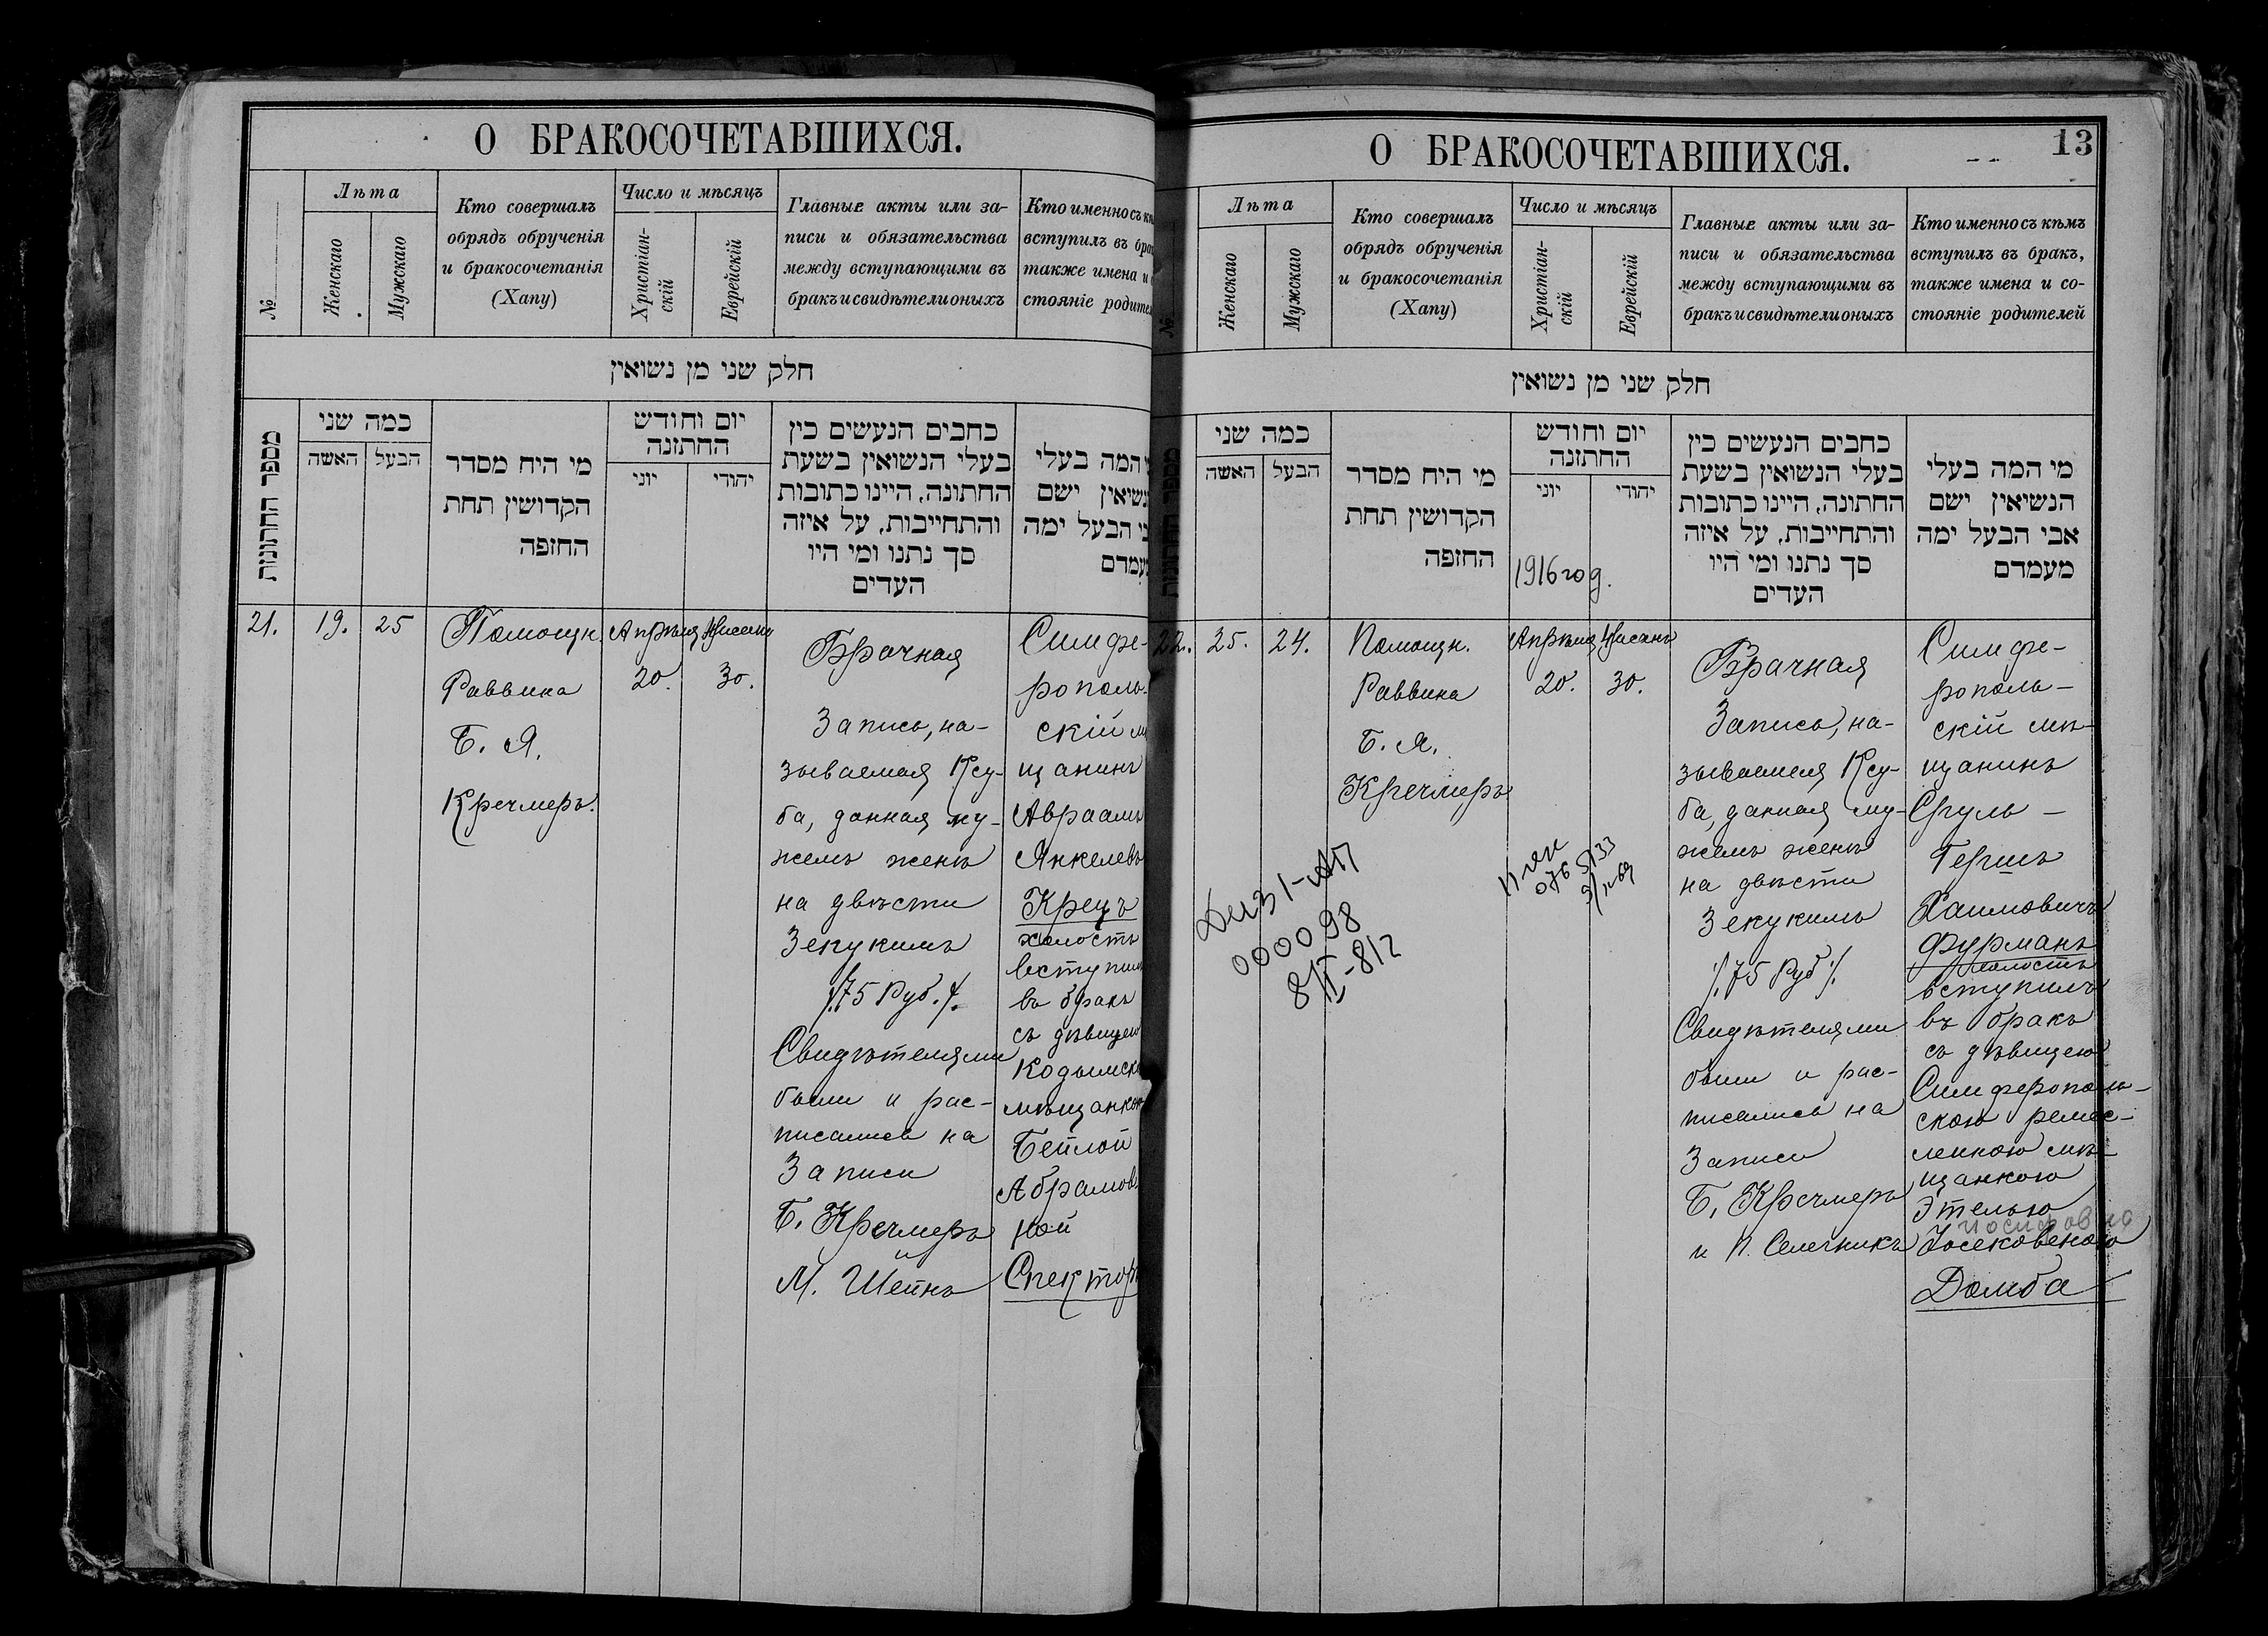 О БРАКОСОЧЕТАВШИХСЯ.
№
Лѣта
Женскаго
Мужскаго
Кто совершалъ
обрядъ обрученія
и бракосочетанія
(Хапу)
Число и мѣсяцъ
Христіан-
скій
Еврейскій
Главные акты или за-
писи и обязательства
между вступающими въ
бракъ и свидѣтели оныхъ
Кто именно съ
вступилъ въ
также имена и
стояніе
חלק שני מן נשואין
מספר החתונות
כמה שני
האשה
הבעל
מי היח מסדר
הקדושין תחת
החופה
יום וחודש
החתונה
יוני
יהודי
כחבים הנעשים כין
בעלי הנשואין בשעת
החתונה, היינו כתובות
והתחייבות, על איזה
סך נתנו ומי היו
העדים
המה בעלי
ישם
הבעל ימה
21.
19.
25
Помощн.
Раввина
Б. Я.
Кречмеръ.
Апрѣля
20.
Нисана
30.
Брачная
Запись, на-
зываемая Ксу-
ба, данная му-
жемъ женѣ
на двѣсти
Зекукимъ
/.75 Руб./.
Свидѣтелями
были и рас-
писались на
Записи
Б. Кречмеръ
и
М. Шейнъ
Симфе-
рополь-
скій
щанинъ
Авраамъ
Янкелевъ
Крецъ
холостъ
вступилъ
въ бракъ
съ дѣвицею
Кодымск
мѣщанкою
Бейлой
Абрамов
ной
Спектор
О БРАКОСОЧЕТАВШИХСЯ.
13
№
Лѣта
Женскаго
Мужскаго
Кто совершалъ
обрядъ обрученія
и бракосочетанія
(Хапу)
Число и мѣсяцъ
Христіан-
скій
Еврейскій
Главные акты или за-
писи и обязательства
между вступающими въ
бракъ и свидѣтели оныхъ
Кто именно съ кѣмъ
вступилъ въ бракъ,
также имена и со-
стояніе родителей
חלק שני מן נשואין
כמה שני
האשה
הבעל
מי היח מסדר
הקדושין תחת
החופה
יום וחודש
החתונה
יוני
יהודי
1916 год.
כחבים הנעשים כין
בעלי הנשואין בשעת
החתונה, היינו כתובות
והתחייבות, על איזה
סך נתנו ומי היו
העדים
מי המה בעלי
הנשיאין ישם
אבי הבעל ימה
מעמדם
22.
25.
24.
Помощн.
Раввина
Б. Я.
Кречмеръ
Апрѣля
20.
Нисанъ
30.
000098
Брачная
Запись, на-
зываемая Ксу-
ба, данная му-
жемъ женѣ
на двѣсти
Зекукимъ
/.75 Руб./.
Свидѣтелями
были и рас-
писались на
Записи
Б. Кречмеръ
и П. Селечникъ
Симфе-
рополь-
скій мѣ-
щанинъ
Сруль-
Гершъ
Хаимовичъ
Фурманъ
холостъ
вступилъ
въ бракъ
съ дѣвицею
Симферополь-
скою ремес-
ленною мѣ-
щанкою
Этелью
Іосековеною
Домба